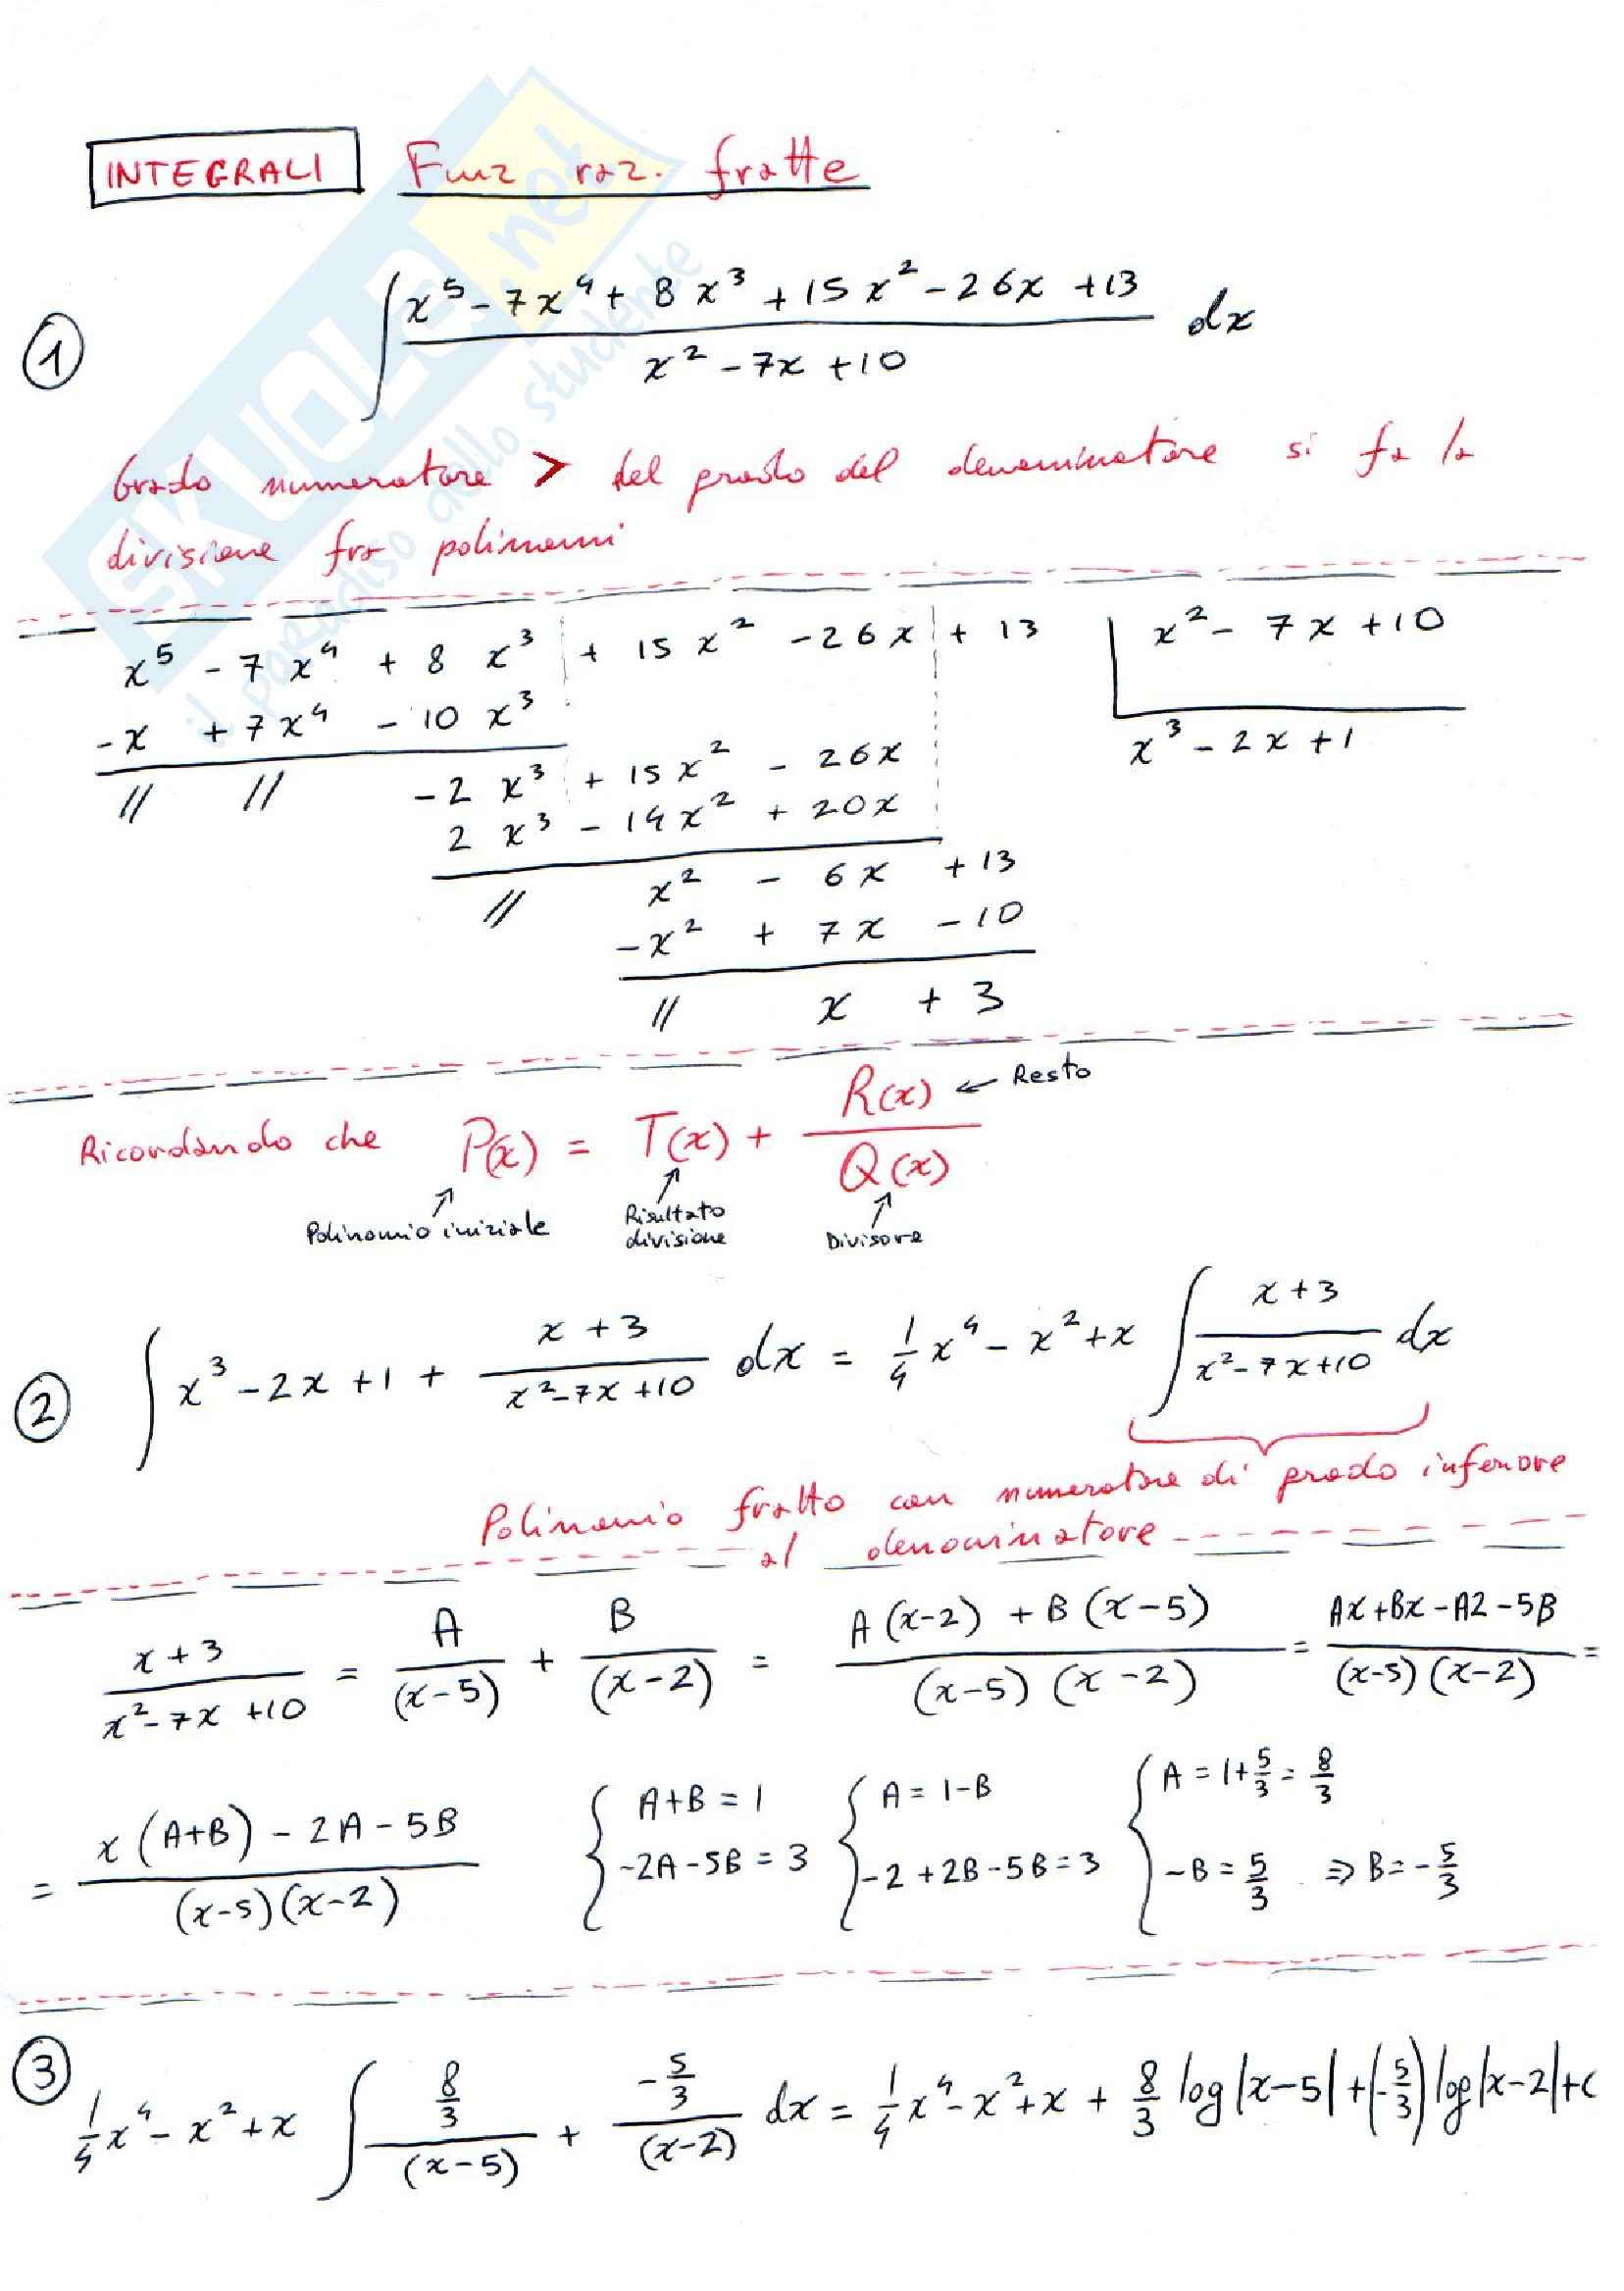 INTEGRALI Funz raz. fratte
① ∫ (x⁵ - 7x⁴ + 8x³ + 15x² - 26x + 13) / (x² - 7x + 10) dx
Grado numeratore > del grado del denominatore si fa la
divisione fra polinomi
x⁵ - 7x⁴ + 8x³ + 15x² - 26x + 13 | x² - 7x + 10
-x + 7x⁴ - 10x³
x³ - 2x + 1
// // -2x³ + 15x² - 26x
2x³ - 14x² + 20x
// x² - 6x + 13
-x² + 7x - 10
// x + 3
Ricordando che P(x) = T(x) + R(x) / Q(x) ← Resto
Polinomio iniziale
Risultato
divisione
Divisore
② ∫ x³ - 2x + 1 + (x + 3) / (x² - 7x + 10) dx = 1/4 x⁴ - x² + x ∫ (x + 3) / (x² - 7x + 10) dx
Polinomio fratto con numeratore di grado inferiore
al denominatore
(x + 3) / (x² - 7x + 10) = A / (x - 5) + B / (x - 2) = (A(x-2) + B(x-5)) / ((x-5)(x-2)) = (Ax + Bx - A2 - 5B) / ((x-5)(x-2)) =
= (x(A+B) - 2A - 5B) / ((x-5)(x-2)) { A+B = 1 { A = 1-B { A = 1+5/3 = 8/3
-2A - 5B = 3 -2 + 2B - 5B = 3 -B = 5/3 ⇒ B = -5/3
③ 1/4 x⁴ - x² + x ∫ (8/3) / (x-5) + (-5/3) / (x-2) dx = 1/4 x⁴ - x² + x + 8/3 log|x-5| + (-5/3) log|x-2| + c
SKUOLA.net
il paradiso dello studente